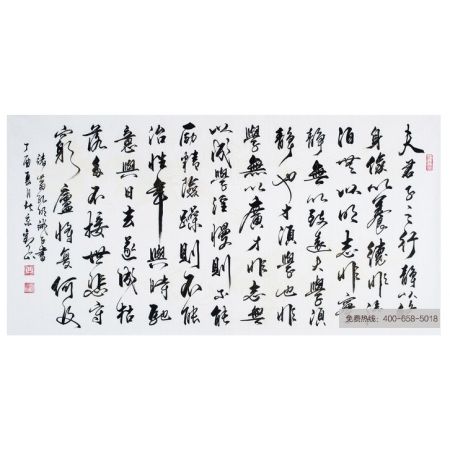 夫君子之行靜以修
身儉以養德非淡
泊無以明志非寧
靜無以致遠夫學須
靜也才須學也非
學無以廣才非志無
以成學淫慢則不能
励精險躁則不能
治性年與時馳
意與日去遂成枯
落多不接世悲守
窮廬將復何及
諸葛孔明誡子書
丁酉夏月於北京
免费热线：400-658-5018